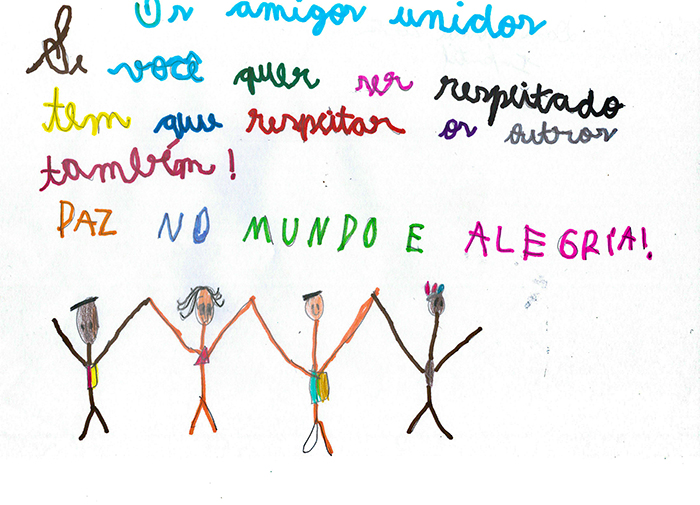 Os amigos unidos
Se você quer ser respeitado
tem que respeitar os outros
também!
PAZ NO MUNDO E ALEGRIA!